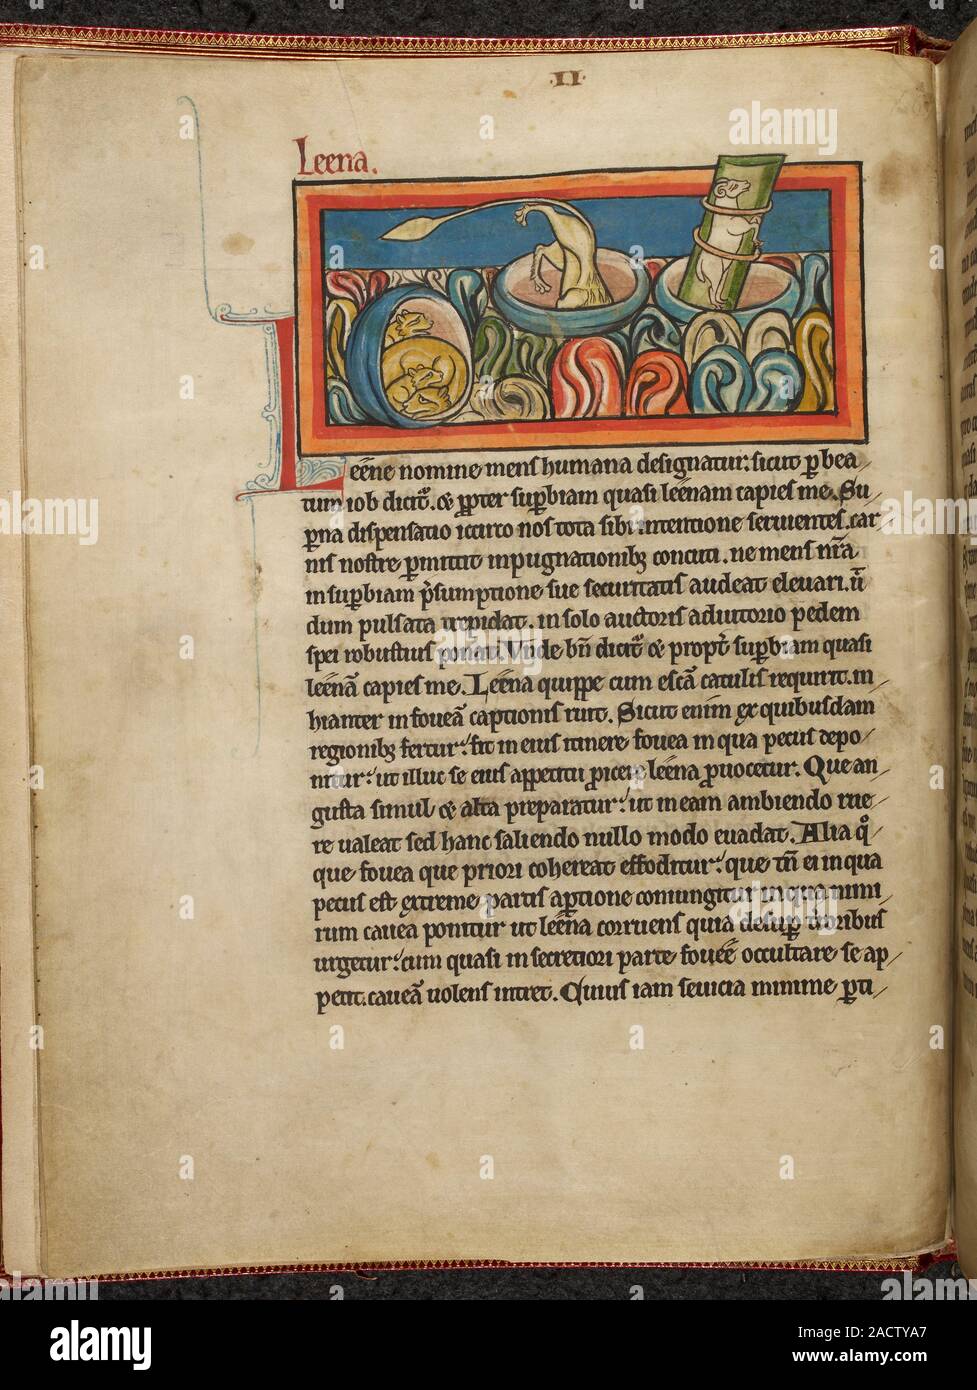 ·II·
Leena.
Leene nomine mens humana designatur: sicut p bea
tum iob dicit. & ppter supbiam quasi leenam capies me. Su
pna dispensatio iccirco nos tota sibi intentione seruientes. car
nis nostre pmittit inpugnationib; concuti. ne mens nra
in supbiam psumptione sue securitatis audeat eleuari. ū
dum pulsata trepidat. in solo auctoris adiutorio pedem
spei robustius ponat. Unde bn dicit & propt supbiam quasi
leena capies me. Leena quippe cum esca catulis requirit. in
hianter in fouea captionis ruit. Sicut enim ex quibusdam
regionib; fertur: fit in eius itinere fouea in qua pecus depo
nitur: ut illuc se eius appetitu picere leena puocetur. Que an
gusta simul & alta preparatur: ut in eam ambiendo rue
re ualeat sed hanc saliendo nullo modo euadat. Alia q
que fouea que priori cohereat effoditur: que tn ei in qua
pecus est extreme partis aptione coniungitur in qua nimi
rum cauea ponitur ut leena corruens quia desup terroribus
urgetur: cum quasi in secretiori parte fouee occultare se ap
petit. caueā uolens intret. Cuius iam seuicia minime pti
a alamy
alamy
Image ID: 2ACTYA7
www.alamy.com